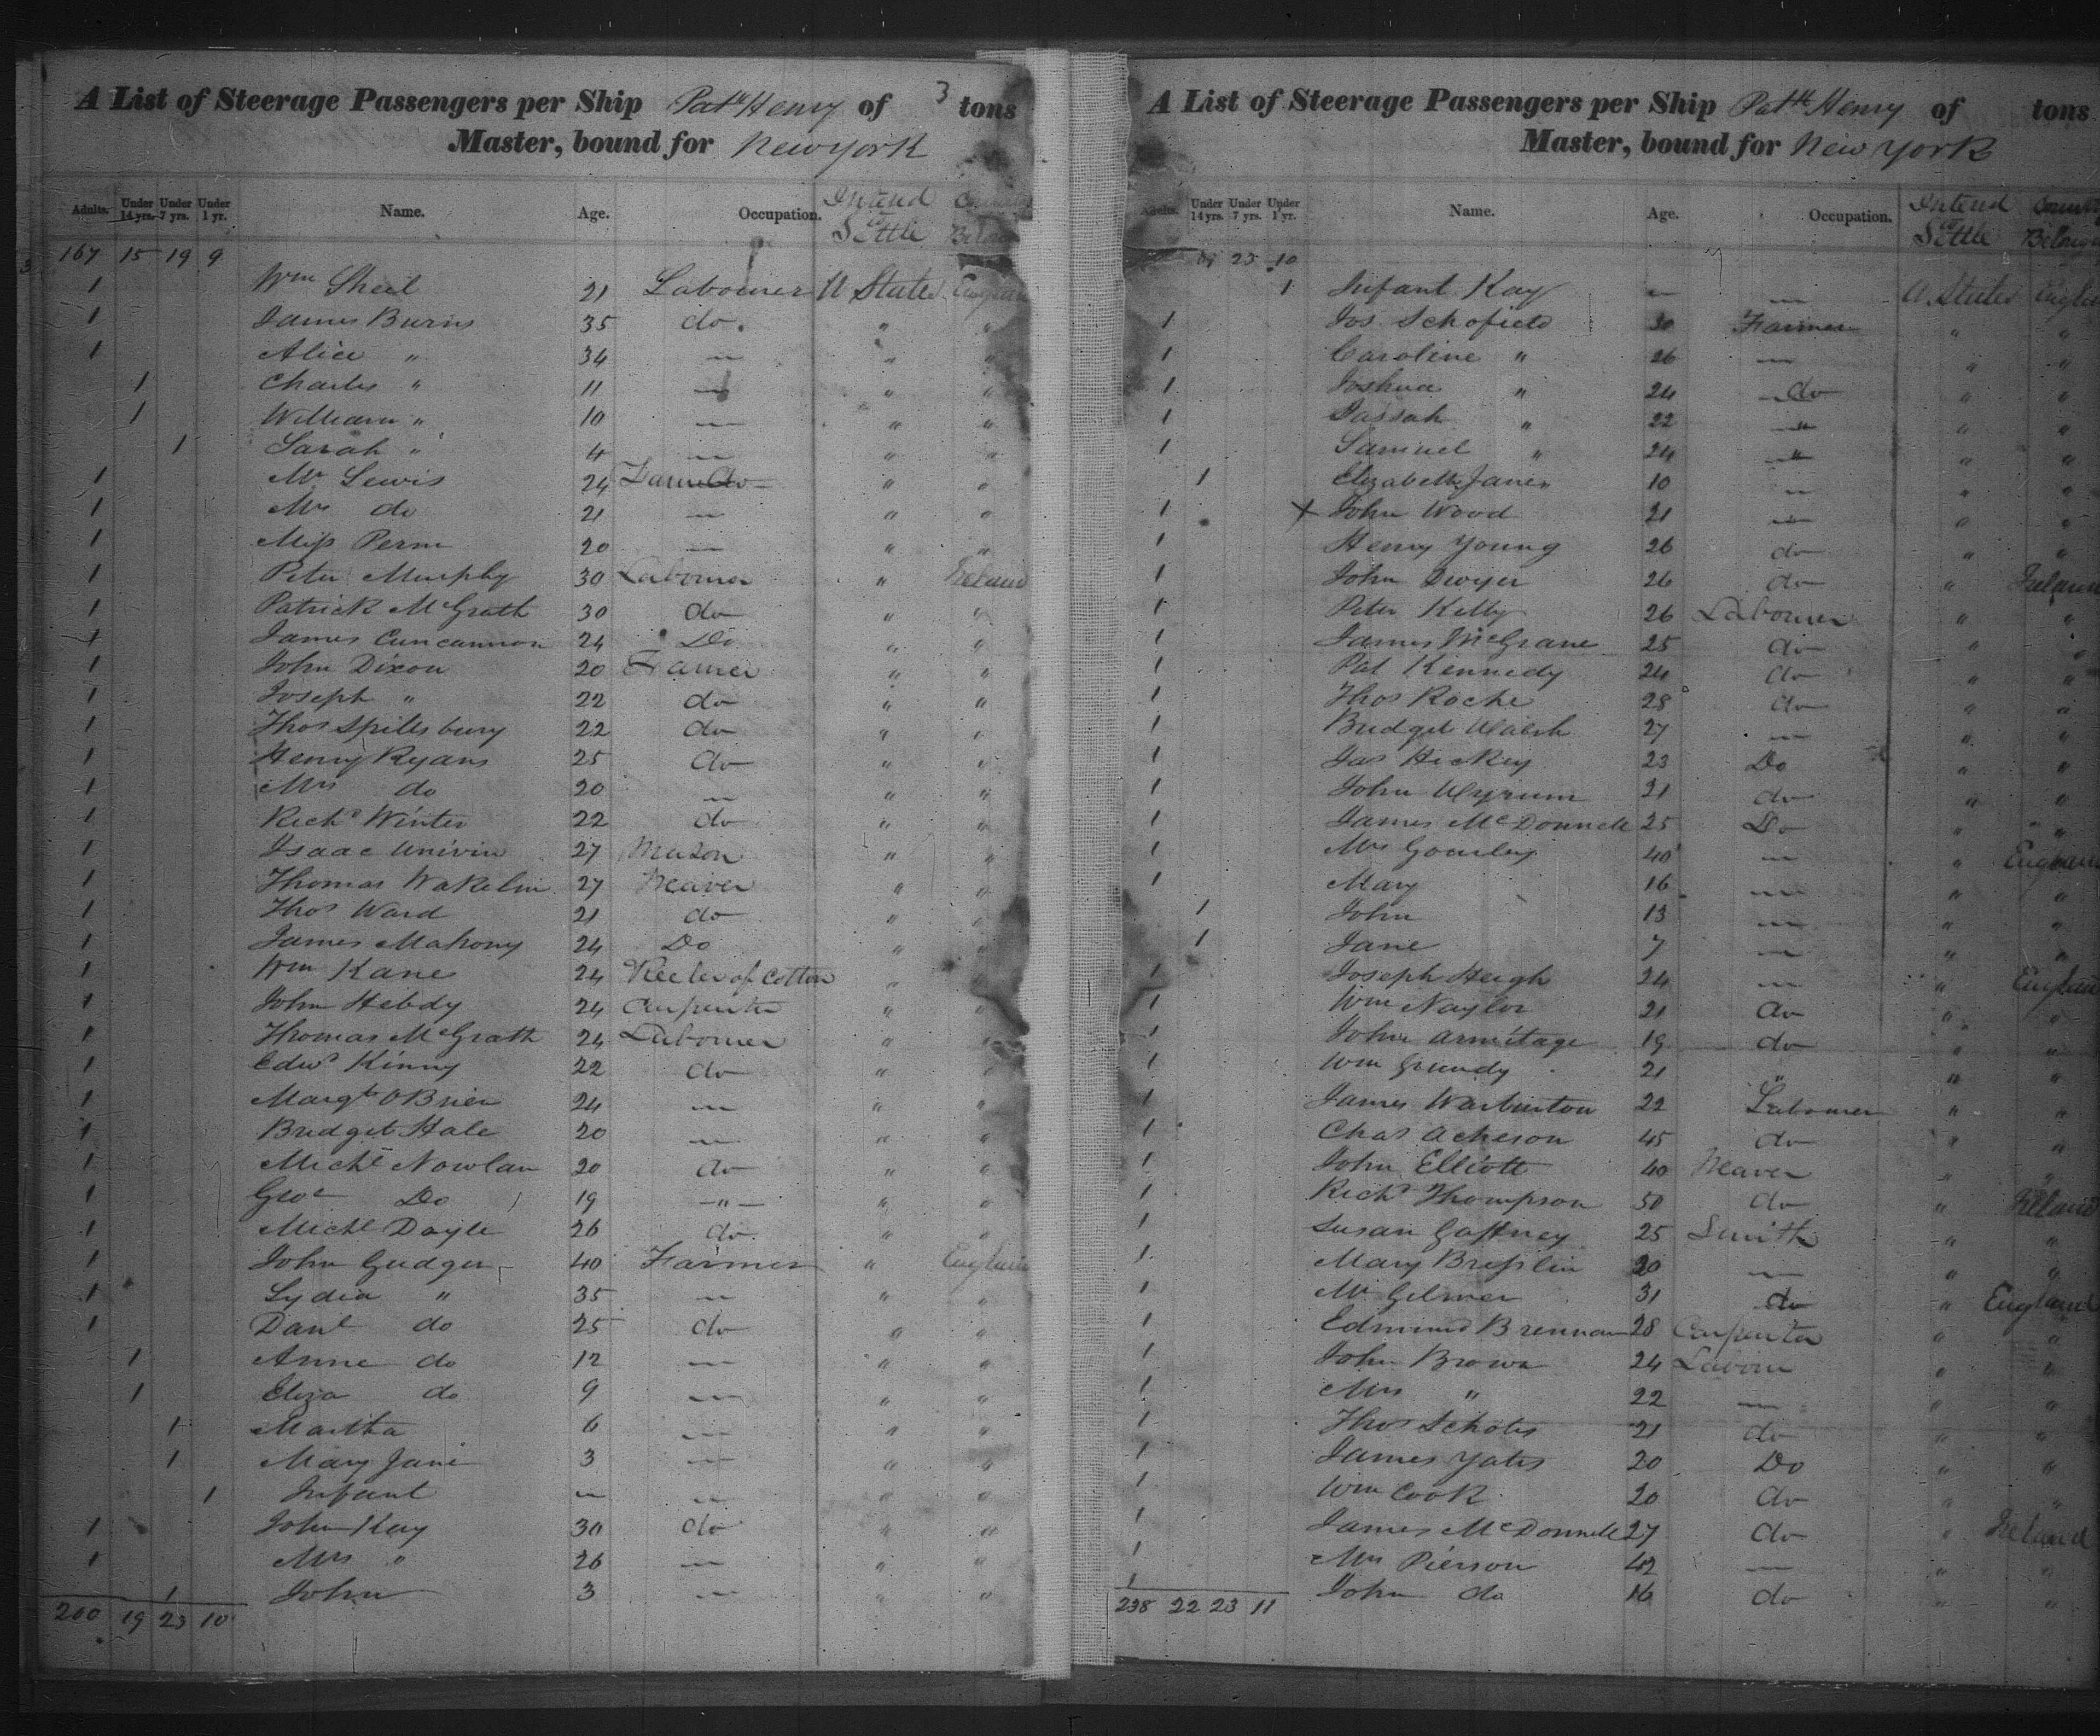 A List of Steerage Passengers per Ship Patk Henry of 3 tons
Master, bound for New York
Adults. Under 14 yrs. Under 7 yrs. Under 1 yr. Name. Age. Occupation. Intend to Settle Country Belong
167 15 19 9
1 Wm Sheil 21 Labourer U States England
1 James Burns 35 do " "
1 Alice " 34 — " "
1 Charles " 11 — " "
1 William " 10 — " "
1 Sarah " 4 — " "
1 Mr Lewis 24 Farmer " "
1 Mrs do 21 — " "
1 Miss Perm 20 — " "
1 Peter Murphy 30 Labourer " Ireland
1 Patrick McGrath 30 do " "
1 James Cuncannon 24 Do " "
1 John Dixon 20 Farmer " "
1 Joseph " 22 do " "
1 Thos Spillsbury 22 do " "
1 Henry Ryans 25 do " "
1 Mrs do 20 — " "
1 Richd Winter 22 do " "
1 Isaac Univin 27 Mason " "
1 Thomas Wakelin 27 Weaver " "
1 Thos Ward 21 do " "
1 James Mahony 24 Do " "
1 Wm Kane 24 Reeler of Cotton "
1 John Hebdy 24 Carpenter " "
1 Thomas McGrath 24 Labourer " "
1 Edwd Kinny 22 do " "
1 Margt OBrien 24 — " "
1 Bridget Hale 20 — " "
1 Michl Nowlan 20 do " "
1 Geoe Do 19 —"— " "
1 Michl Doyle 26 do " "
1 John Gudger 40 Farmer " England
1 Lydia " 35 — " "
1 Danl do 25 do " "
1 Anne do 12 — " "
1 Eliza do 9 — " "
1 Martha 6 — " "
1 Mary Jane 3 — " "
1 Infant — — " "
1 John Kay 30 do " "
1 Mrs " 26 — " "
1 John 3 — " "
200 19 23 10
A List of Steerage Passengers per Ship Patk Henry of tons
Master, bound for New York
Adults. Under 14 yrs. Under 7 yrs. Under 1 yr. Name. Age. Occupation. Intend to Settle Country Belong
23 10
1 Infant Kay — — U States England
1 Jos Schofield 30 Farmer " "
1 Caroline " 26 — " "
1 Joshua " 24 do " "
1 " 22 " " "
1 Samuel " 24 " " "
1 Elizabeth Jane " 10 — " "
1 X John Wood 21 — " "
1 Henry Young 26 do " "
1 John Dwyer 26 do " Ireland
1 Peter Kelly 26 Labourer " "
1 James McGrane 25 do " "
1 Pat Kennedy 24 do " "
1 Thos Roche 28 do " "
1 Bridget Walsh 27 — " "
1 Jas Hickey 23 Do " "
1 John 21 do " "
1 James McDonnell 25 Do " "
1 Mrs Gourley 40 — " England
1 Mary 16 — " "
1 John 13 — " "
1 Jane 7 — " "
1 Joseph Heigh 24 — " England
1 Wm Naylor 21 do " "
1 John Armitage 19 do " "
1 Wm Grundy 21 " " "
1 James Warbinton 22 Labourer " "
1 Chas Acheson 45 do " "
1 John Elliott 40 Weaver " "
1 Richd Thompson 50 do " Ireland
1 Susan Gaffney 25 Smith " "
1 Mary Breslin 20 — " "
1 Mr Gilmer 31 do " England
1 Edmund Brennan 28 Carpenter " "
1 John Brown 24 Labour " "
1 Mrs " 22 — " "
1 Thos Scholes 21 do " "
1 James Yates 20 Do " "
1 Wm Cook 20 do " "
1 James McDonnell 27 do " Ireland
1 Mrs Pierson 42 — " "
1 John do 16 do " "
238 22 23 11